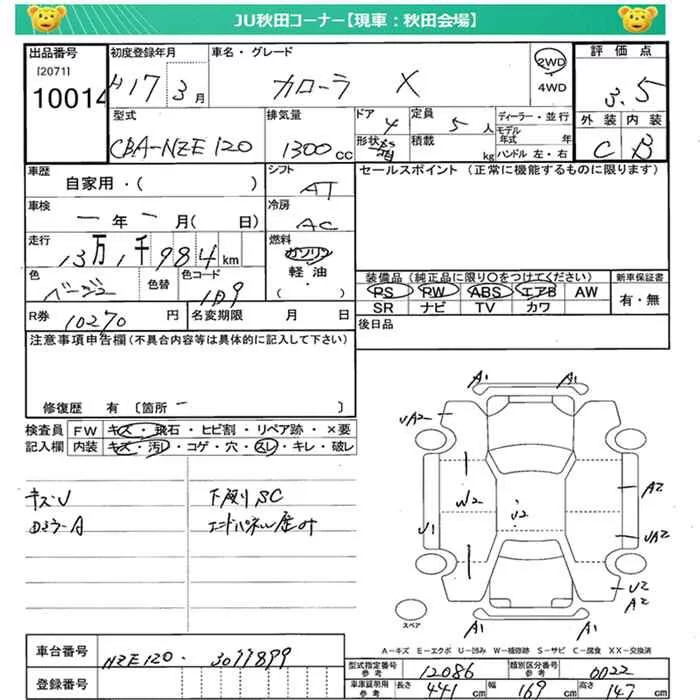 JU秋田コーナー【現車：秋田会場】
出品番号 初度登録年月 車名・グレード 評価点
[2071]
10014 H17 3月 カローラ X 2WD 3.5
・
4WD
外装 内装
C B
型式 排気量 ドア 定員 ディーラー・並行
CBA-NZE120 1300cc 4 5人 モデル年式 年
形状 積載 kg ハンドル 左・右
車歴 シフト セールスポイント (正常に機能するものに限ります)
自家用・( ) AT
車検 冷房
一年一月( 日) AC
走行 燃料
13万1千984km ガソリン
軽油
・( )
色 色替 色コード
ベージュ 1D9
装備品 (純正品に限り○をつけてください) 新車保証書
PS PW ABS エアB AW 有・無
SR ナビ TV カワ
R券 10270円 名変期限 月 日 後日品
注意事項申告欄(不具合内容等は具体的に記入して下さい)
修復歴 有〔箇所 - 〕
検査員 FW キズ・飛石・ヒビ割・リペア跡・×要
記入欄 内装 キズ・汚レ・コゲ・穴・スレ・キレ・破レ
キズ・U 下廻りSC
エンドパネル歪み
A1 A1
UA2
W2
U2
U1
A2
UA2
U2
A2
A1 A1
スペア
A－キズ E－エクボ U－凹み W－補修跡 S－サビ C－腐食 XX－交換済
車台番号 NZE120-3077899
登録番号
型式指定番号 参考 12086 類別区分番号 参考 0022
車庫証明用 参考 長さ 441cm 幅 169cm 高さ 147cm